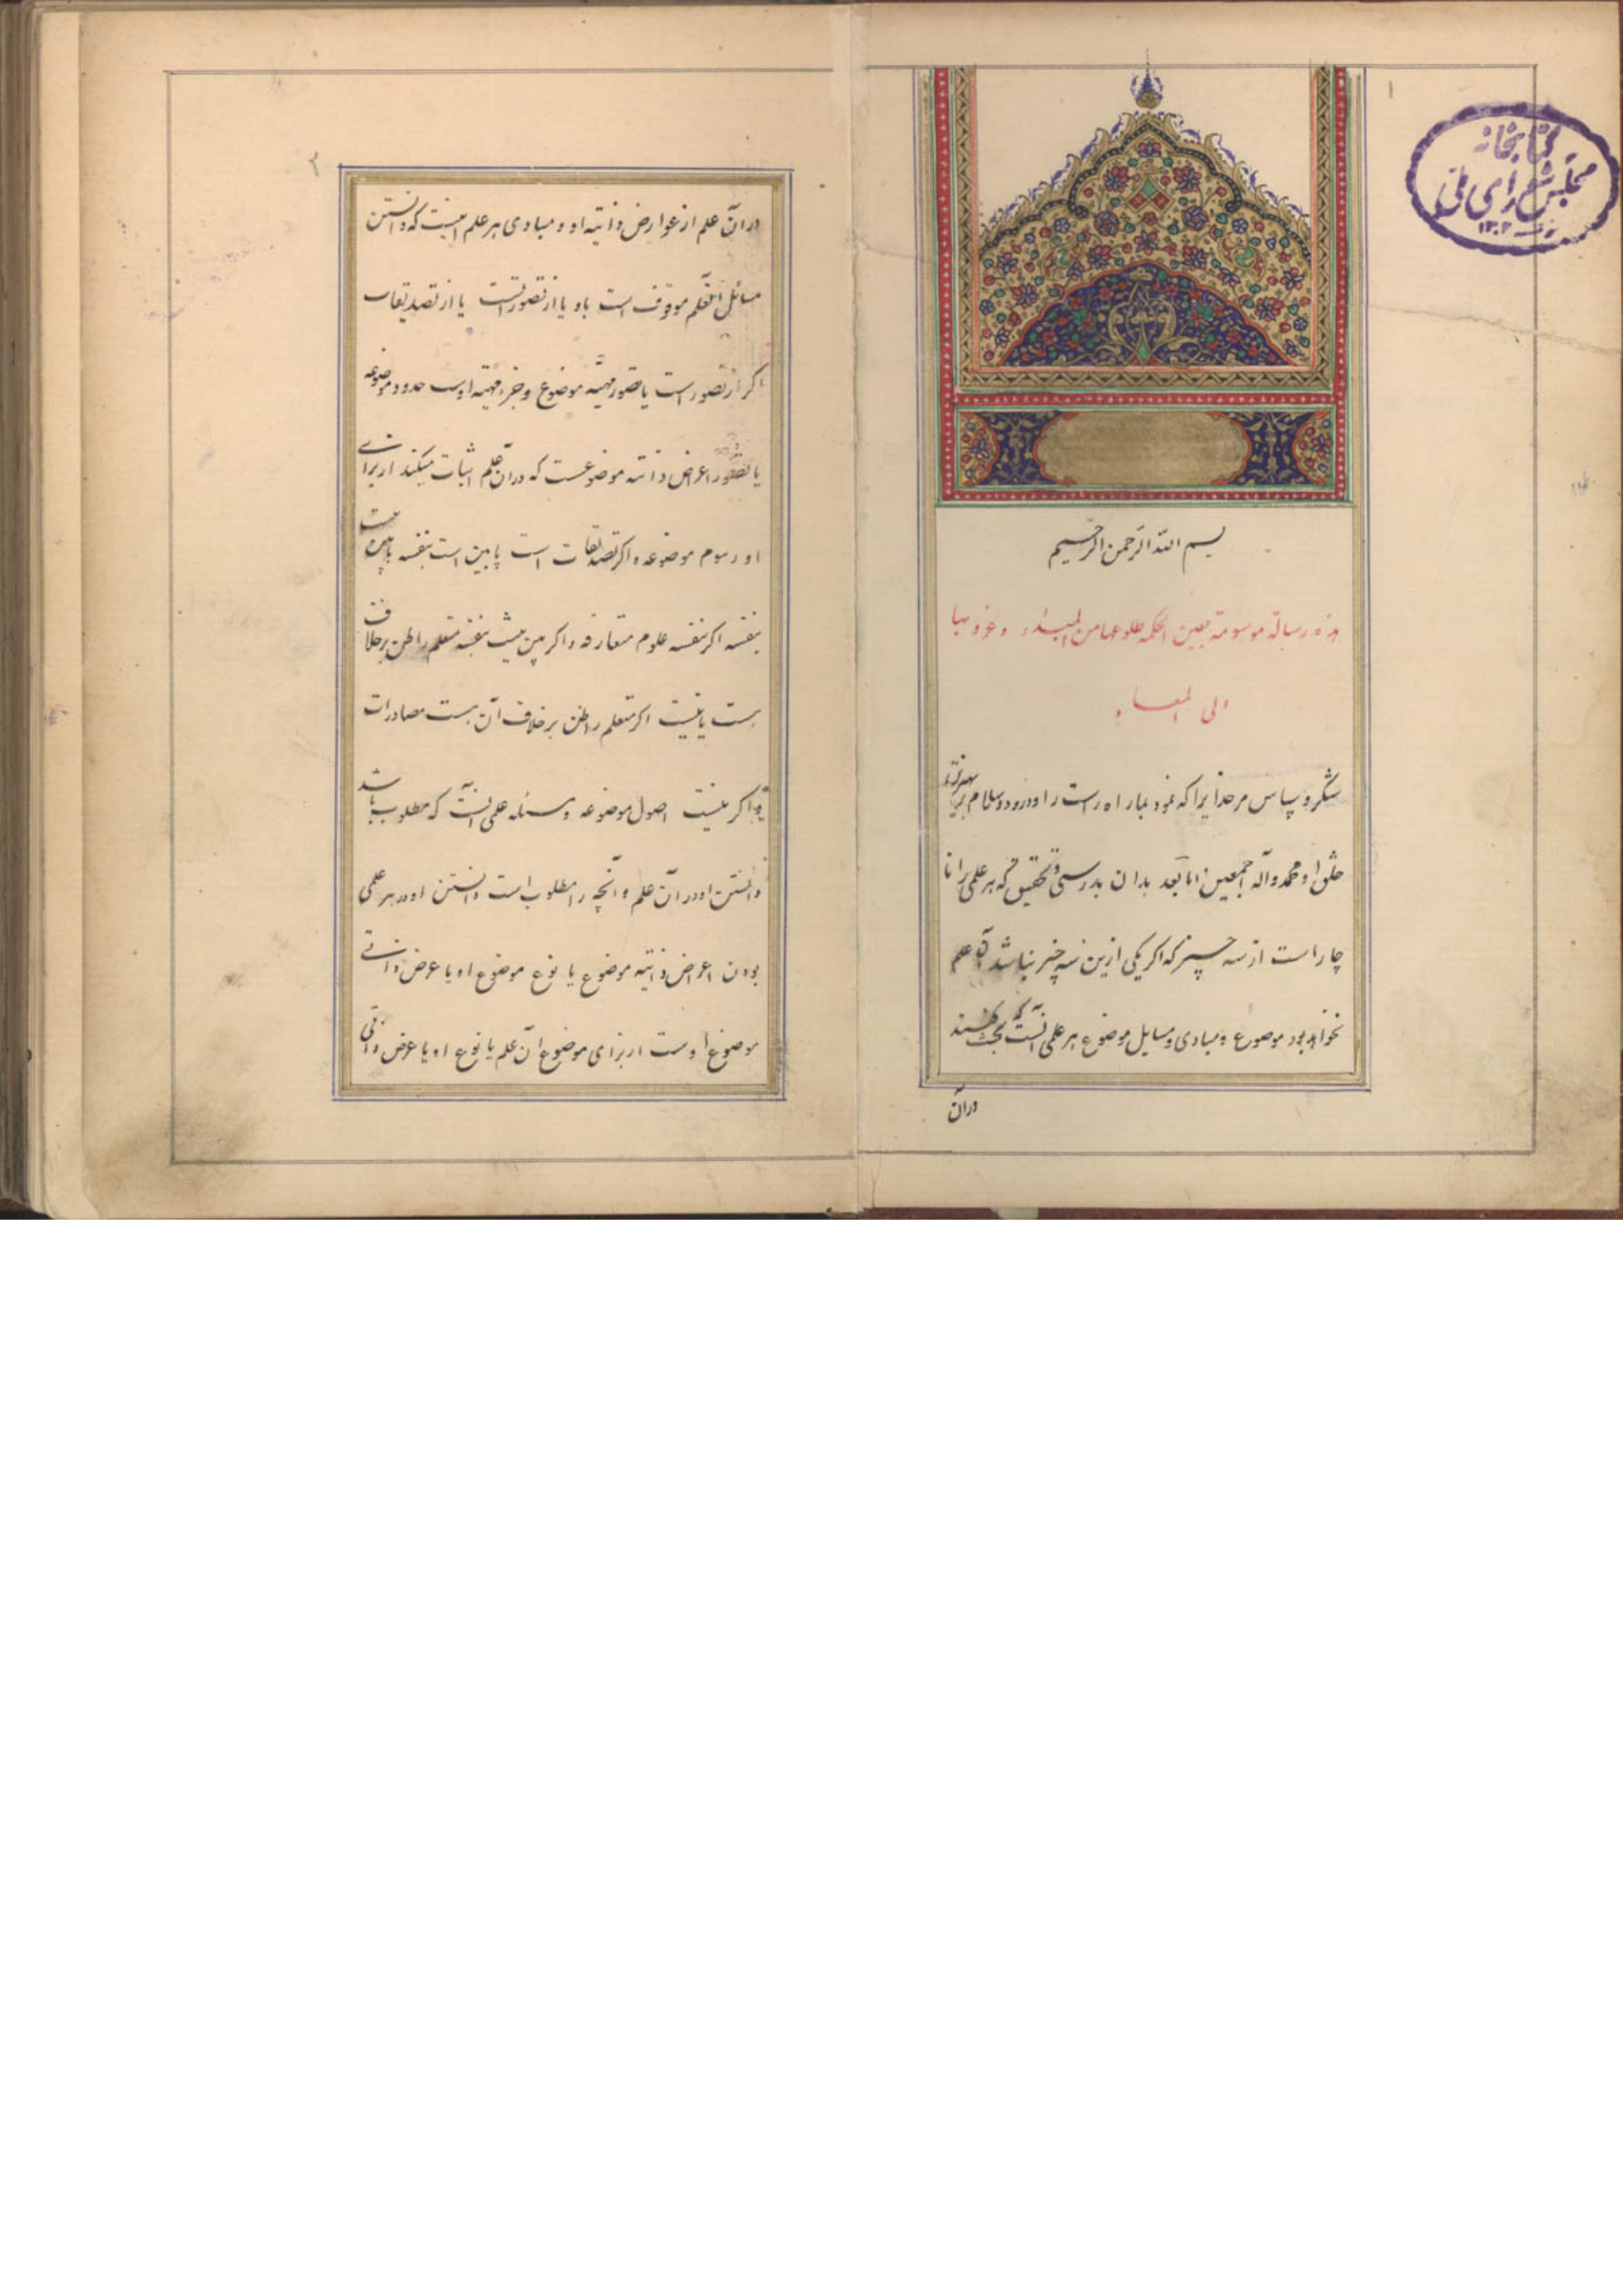 ۱
کتابخانه
مجلس شورای ملی
۱۳۰۲
بسم الله الرحمن الرحیم
هذه رسالة موسومة بعین الحکمه طلوعها من المبدء و غروبها
الی المعاد
شکر و سپاس مر خدایرا که نمود بما راه راست را و درود و سلام بر بهترین
خلق او محمد و آله اجمعین اما بعد بدان بدرستی و تحقیق که هر علمی را نا
چار است از سه چیز که اگر یکی ازین سه چیز نباشد آن علم
نخواهد بود موضوع و مبادی و مسایل موضوع هر علمی آنست که بحث کنند
در آن
۲
در آن علم از عوارض ذاتیه او و مبادی هر علم اینست که دانستن
مسائل آنعلم موقوف است باو یا از تصورات است یا از تصدیقات
اگر از تصور است یا تصور مهیته موضوع و جزء مهیته اوست حدود موضوعه
یا تصور اعراض ذاتیه موضوعست که در آن علم اثبات میکنند از برای
او رسوم موضوعه و اگر تصدیقات است یا بین است بنفسه یا بین نیست
بنفسه اگر بنفسه علوم متعارفه و اگر بین نیست بنفسه متعلم را ظن بر خلاف
هست یا نیست اگر متعلم را ظن بر خلاف آن هست مصادرات
و اگر نیست اصول موضوعه و مسئله علمی آنست که مطلوب باشد
دانستن او در آن علم و آنچه را مطلوب است دانستن او در هر علمی
بودن اعراض ذاتیه موضوع یا نوع موضوع او یا عرض ذاتی
موضوع اوست از برای موضوع آن علم یا نوع او یا عرض ذاتی